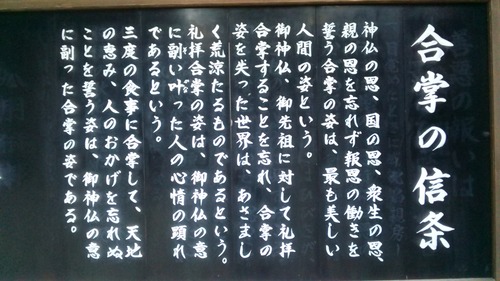 合掌の信条
神仏の恩、国の恩、衆生の恩、
親の恩を忘れず報恩の働きを
誓う合掌の姿は、最も美しい
人間の姿という。
御神仏、御先祖に対して礼拝
合掌することを忘れ、合掌の
姿を失った世界は、あさまし
く荒涼たるものであるという。
礼拝合掌の姿は、御神仏の意
に副い叶った人の心情の顕れ
であるという。
三度の食事に合掌して、天地
の恵み、人のおかげを忘れぬ
ことを誓う姿は、御神仏の意
に副った合掌の姿である。